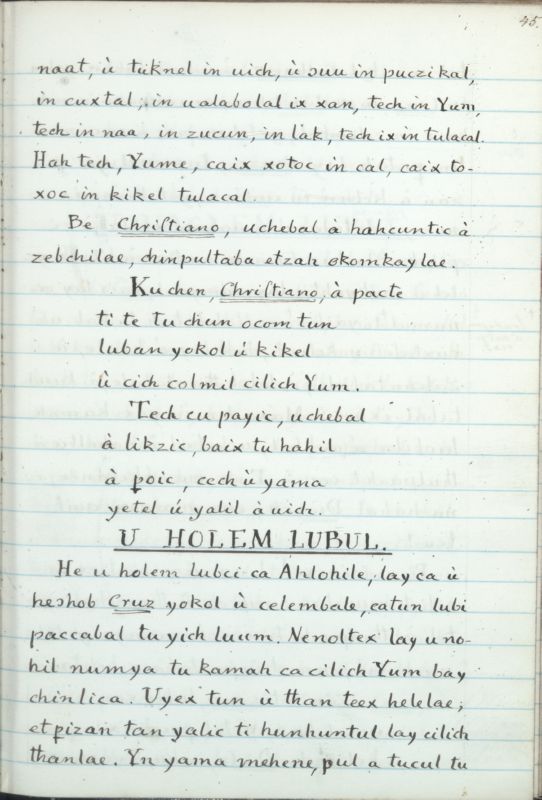 45.
naat, ù tuknel in uich, ù ɔuu in puczikal,
in cuxtal, in ualabolal ix xan, tech in Yum,
tech in naa, in zucun, in lak, tech ix in tulacal.
Hah tech, Yume, caix xotoc in cal, caix to-
xoc in kikel tulacal.
Be Chriſtiano, uchebal à hahcuntic à
zebchilae, chinpultaba etzah okomkaylae.
Kuchen, Chriſtiano, à pacte
ti te tu chun ocom tun
luban yokol ú kikel
ù cich colmil cilich Yum.
Tech cu payic, uchebal
à likzic, baix tu hahil
à poic, cech ù yama
yetel ú yalil à uich.
U HOLEM LUBUL.
He u holem lubci ca Ahlohile, lay ca ù
heɔhob Cruz yokol ù celembale, catun lubi
paccabal tu yich luum. Nenoltex lay u no-
hil numya tu kamah ca cilich Yum bay
chinlica. Uyex tun ù than teex helelae;
et pizan tan yalic ti hunhuntul lay cilich
thanlae. Yn yama mehene, pul a tucul tu